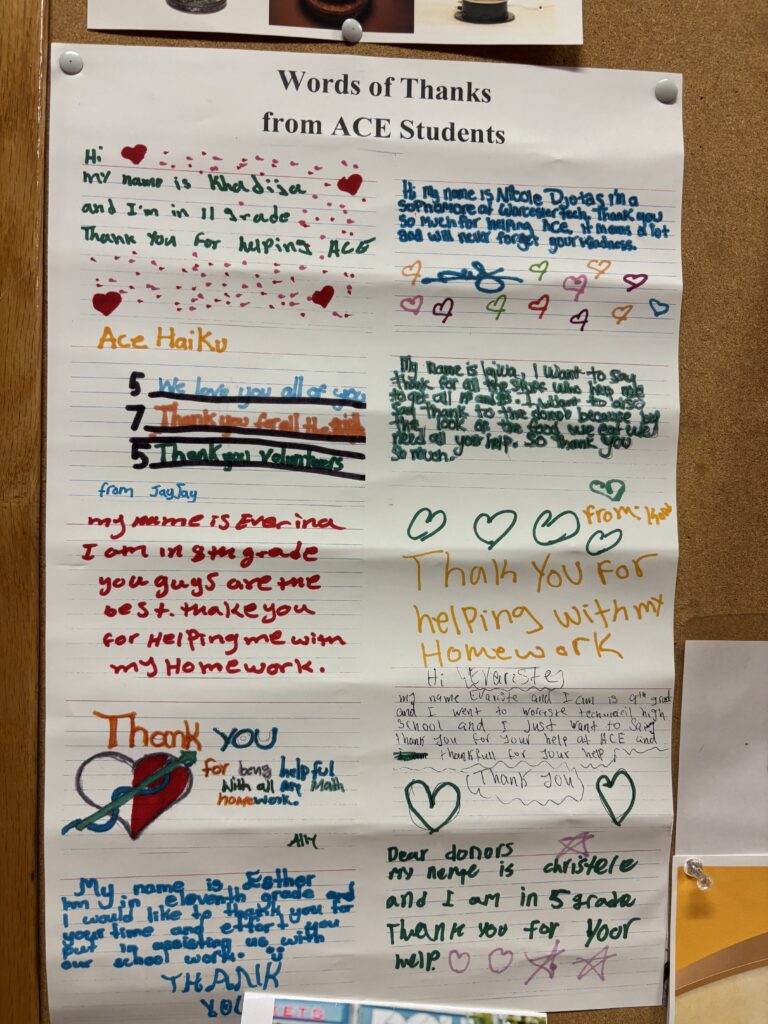 Words of Thanks
from ACE Students
Hi
my name is Khadija
and I'm in 11 grade
Thank You For helping ACE
Hi my name is Nicole Djotas i'm a
sophomore at Worcester tech. Thank you
so much for helping ACE, it means a lot
and will never forget your kindness.
Ace Haiku
5 We love you all of you
7 Thank you for all the
5 Thank you volunteers
from JayJay
My name is I want to say
thank for all the who help me
to get all I want to also
say thank to the donor because by
the look at the food we eat we
need all your help. So thank you
so much.
my name is Everina
I am in 8th grade
you guys are the
best. thake you
for Helping me with
my Homework.
from:
Thak You For
helping with my
Homework
Hi Evariste
my name Evariste and I am is 9th grade
and I went to worcste techmacil high
School and I just want to Say
thank you for your help at ACE and
thankfull for your help,
(Thank You)
Thank you
for being helpful
With all are Math
homework.
My name is Esther
Im in eleventh grade and
I would like to thank you for
your time and effort you
put in assisting us with
our school work.
THANK
YOU
Dear donors
my name is christele
and I am in 5 grade
Thank you for your
help
KETS